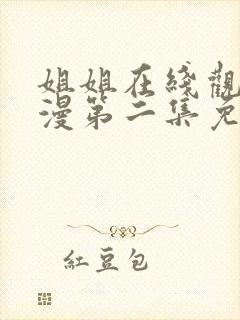 姐姐在綫觀
漫第二集免
紅豆包